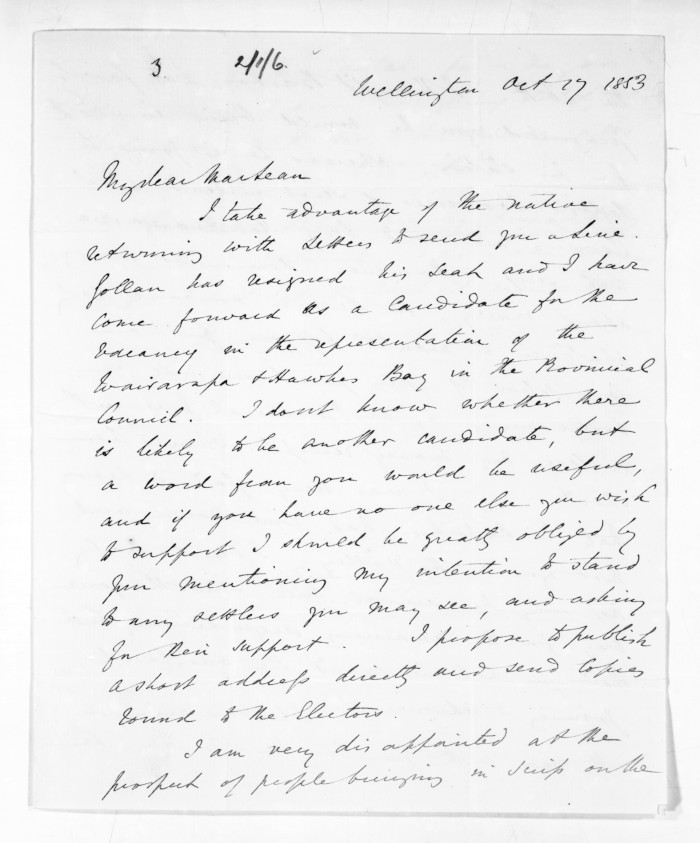 3 2/1/6.
Wellington Oct 17 1853
My dear MacLean
I take advantage of the native
returning with letters to send you a line.
Gollan has resigned his seat and I have
come forward as a candidate for the
vacancy in the representation of the
Wairarapa & Hawkes Bay in the Provincial
Council. I dont know whether there
is likely to be another candidate, but
a word from you would be useful,
and if you have no one else you wish
to support I should be greatly obliged by
your mentioning my intention to stand
to any settlers you may see, and asking
for their support. I propose to publish
a short address directly and send copies
round to the Electors.
I am very disappointed at the
prospect of people bringing in scrip on the